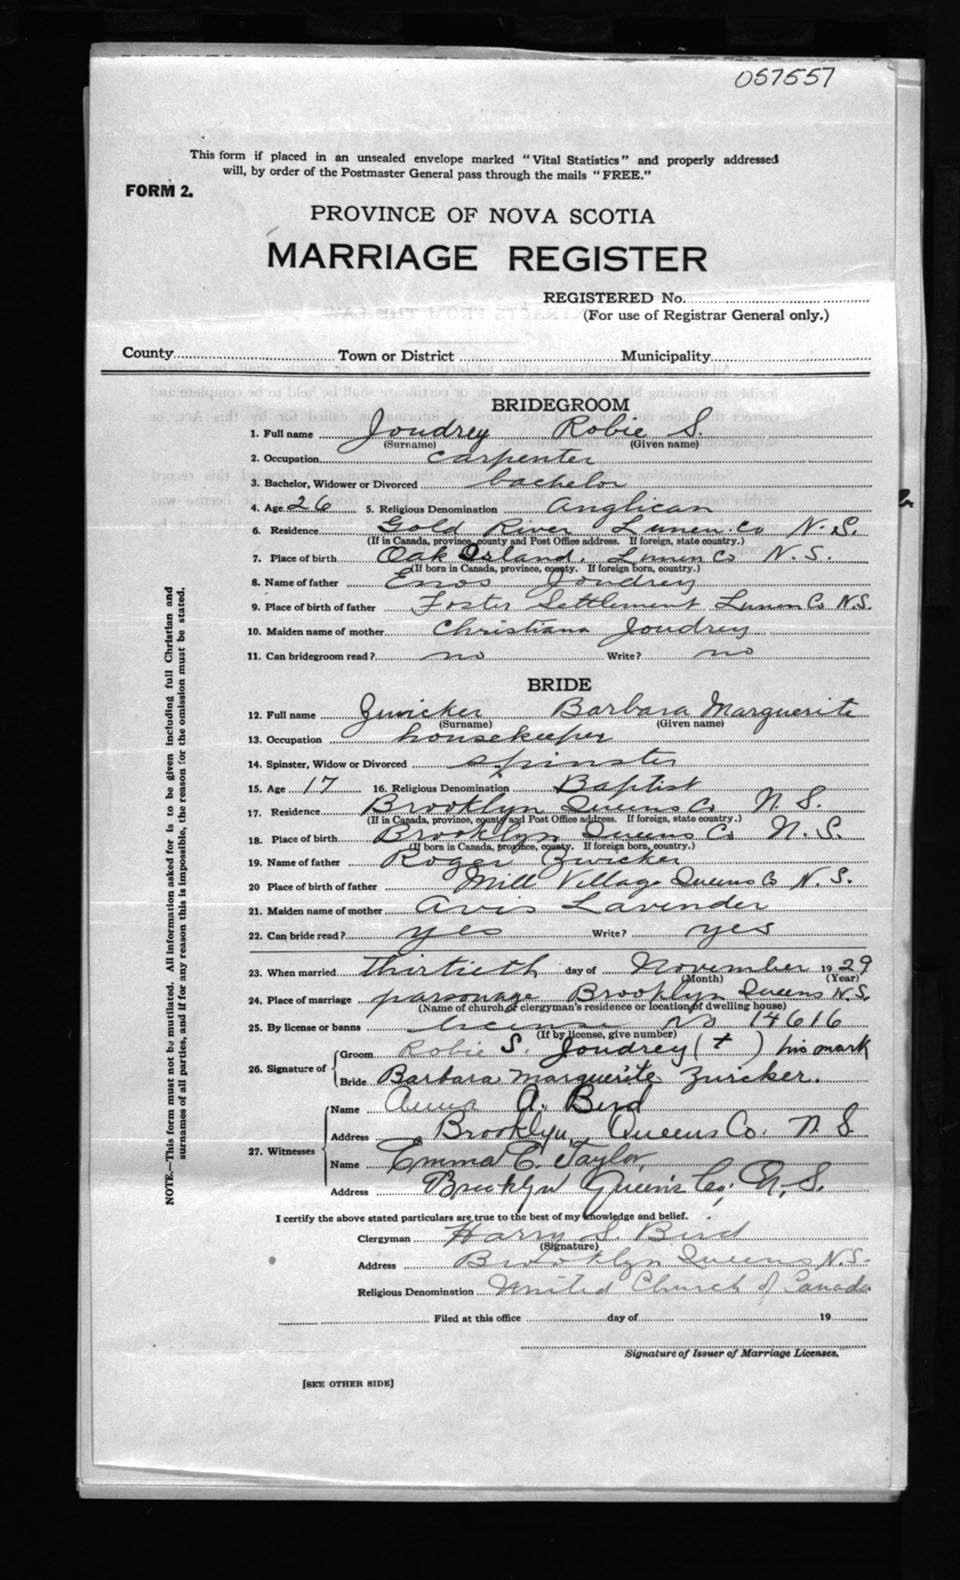 057557
This form if placed in an unsealed envelope marked "Vital Statistics" and properly addressed
will, by order of the Postmaster General pass through the mails "FREE."
FORM 2.
PROVINCE OF NOVA SCOTIA
MARRIAGE REGISTER
REGISTERED No.
(For use of Registrar General only.)
County Town or District Municipality
BRIDEGROOM
1. Full name Joudrey Robie S.
(Surname) (Given name)
2. Occupation carpenter
3. Bachelor, Widower or Divorced bachelor
4. Age 26 5. Religious Denomination Anglican
6. Residence Gold River Lunen. Co N. S.
(If in Canada, province, county and Post Office address. If foreign, state country.)
7. Place of birth Oak Island, Lunen Co N. S.
(If born in Canada, province, county. If foreign born, country.)
8. Name of father Enos Joudrey
9. Place of birth of father Foster Settlement Lunen Co N.S.
10. Maiden name of mother Christiana Joudrey
11. Can bridegroom read? no Write? no
BRIDE
12. Full name Zwicker Barbara Marguerite
(Surname) (Given name)
13. Occupation housekeeper
14. Spinster, Widow or Divorced spinster
15. Age 17 16. Religious Denomination Baptist
17. Residence Brooklyn Queens Co N. S.
(If in Canada, province, county and Post Office address. If foreign, state country.)
18. Place of birth Brooklyn Queens Co N. S.
(If born in Canada, province, county. If foreign born, country.)
19. Name of father Roger Zwicker
20 Place of birth of father Mill Village Queens Co N. S.
21. Maiden name of mother Avis Lavender
22. Can bride read? yes Write? yes
23. When married thirtieth day of November 1929
(Month) (Year)
24. Place of marriage parsonage Brooklyn Queens N.S.
(Name of church or clergyman's residence or location of dwelling house)
25. By license or banns license No 14616
(If by license, give number)
26. Signature of Groom Robie S. Joudrey (+) his mark
Bride Barbara Marguerite Zwicker.
27. Witnesses Name Anna A. Bird
Address Brooklyn, Queens Co. N. S
Name Emma C. Taylor,
Address Brooklyn Queen's Co; N. S.
I certify the above stated particulars are true to the best of my knowledge and belief.
Clergyman Harry S. Bird
(Signature)
Address Brooklyn Queens N.S.
Religious Denomination United Church of Canada
Filed at this office day of 19
Signature of Issuer of Marriage Licenses.
[SEE OTHER SIDE]
NOTE.—This form must not be mutilated. All information asked for is to be given including full Christian and
surnames of all parties, and if for any reason this is impossible, the reason for the omission must be stated.